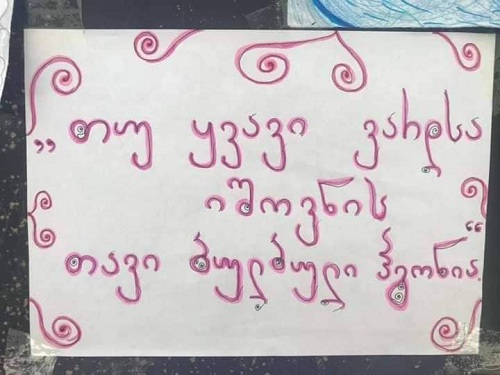 „თუ ყვავი ვარდსა
იშოვნის
თავი ბულბული ჰგონია.“